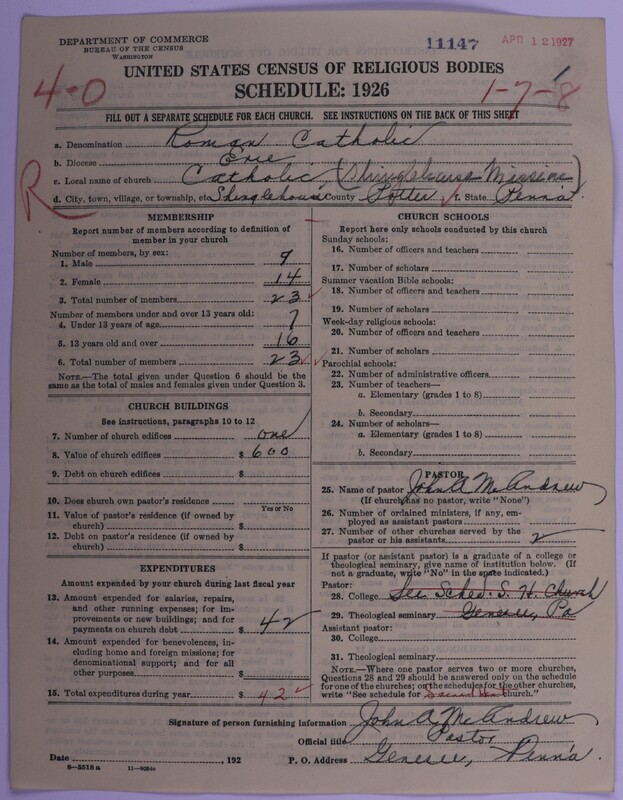 DEPARTMENT OF COMMERCE
BUREAU OF THE CENSUS
WASHINGTON
11147
APR 12 1927
UNITED STATES CENSUS OF RELIGIOUS BODIES
SCHEDULE: 1926
4-0
1-7-8
FILL OUT A SEPARATE SCHEDULE FOR EACH CHURCH. SEE INSTRUCTIONS ON THE BACK OF THIS SHEET
a. Denomination Roman Catholic
b. Diocese Erie
c. Local name of church Catholic (Shinglehouse Mission)
R
d. City, town, village, or township, etc. Shinglehouse County Potter f. State Penn'a
MEMBERSHIP
Report number of members according to definition of
member in your church
Number of members, by sex:
1. Male 9
2. Female 14
3. Total number of members 23
Number of members under and over 13 years old:
4. Under 13 years of age 7
5. 13 years old and over 16
6. Total number of members 23
NOTE.—The total given under Question 6 should be
same as the total of males and females given under Question 3.
CHURCH BUILDINGS
See instructions, paragraphs 10 to 12
7. Number of church edifices one
8. Value of church edifices $ 600
9. Debt on church edifices $
10. Does church own pastor's residence
Yes or No
11. Value of pastor's residence (if owned by
church) $
12. Debt on pastor's residence (if owned by
church) $
EXPENDITURES
Amount expended by your church during last fiscal year
13. Amount expended for salaries, repairs,
and other running expenses; for im-
provements or new buildings; and for
payments on church debt $ 42
14. Amount expended for benevolences, in-
cluding home and foreign missions; for
denominational support; and for all
other purposes $
15. Total expenditures during year $ 42
CHURCH SCHOOLS
Report here only schools conducted by this church
Sunday schools:
16. Number of officers and teachers
17. Number of scholars
Summer vacation Bible schools:
18. Number of officers and teachers
19. Number of scholars
Week-day religious schools:
20. Number of officers and teachers
21. Number of scholars
Parochial schools:
22. Number of administrative officers
23. Number of teachers—
a. Elementary (grades 1 to 8)
b. Secondary
24. Number of scholars—
a. Elementary (grades 1 to 8)
b. Secondary
PASTOR
25. Name of pastor John A McAndrew
(If church has no pastor, write "None")
26. Number of ordained ministers, if any, em-
ployed as assistant pastors
27. Number of other churches served by the
pastor or his assistants 2
If pastor (or assistant pastor) is a graduate of a college or
theological seminary, give name of institution below. (If
not a graduate, write "No" in the space indicated.)
28. College See Sched. S. H. Church
29. Theological seminary Genesee, Pa
Assistant pastor:
30. College
31. Theological seminary
NOTE.—Where one pastor serves two or more churches,
Questions 28 and 29 should be answered only on the schedule
for one of the churches; on the schedules for the other churches,
write "See schedule for Sacred Heart church."
Signature of person furnishing information John A. McAndrew
Official title Pastor
Date , 192 P. O. Address Genesee, Penn'a
8—5518a 11—9084